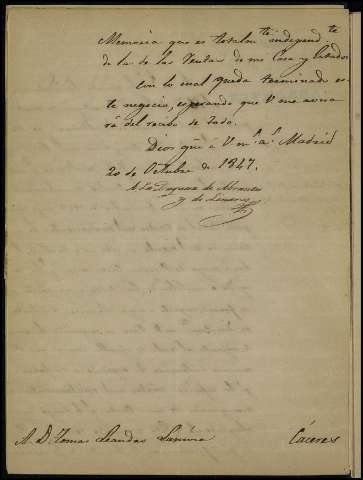 Memoria que es totalm.te independ.te
de la de las Ventas de mi Casa y Estados
Con lo cual queda terminado es-
te negocio, esperando que V me avisa-
rá del recibo de todo.
Dios gũe a V m.s a.s Madrid
20 de Octubre de 1847.
La Duquesa de Abrantes
y de Linares
A. D. Tomas Leandro
Cáceres